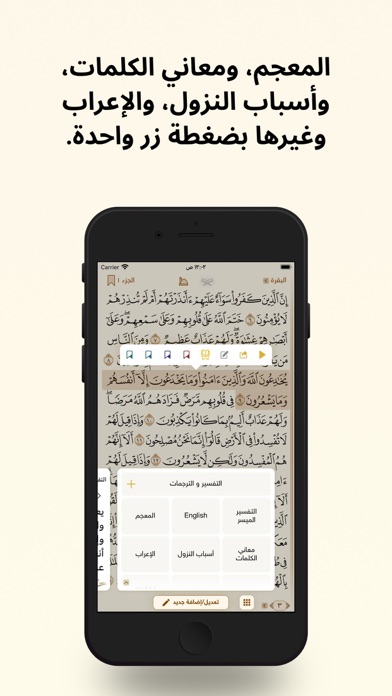 المعجم، ومعاني الكلمات،
وأسباب النزول، والإعراب
وغيرها بضغطة زر واحدة.
Carrier ١٢:٠٢ ص
البقرة الجزء ١
إِنَّ ٱلَّذِينَ كَفَرُوا۟ سَوَآءٌ عَلَيْهِمْ ءَأَنذَرْتَهُمْ أَمْ لَمْ تُنذِرْهُمْ
لَا يُؤْمِنُونَ ٦ خَتَمَ ٱللَّهُ عَلَىٰ قُلُوبِهِمْ وَعَلَىٰ سَمْعِهِمْ ۖ وَعَلَىٰٓ
أَبْصَٰرِهِمْ غِشَٰوَةٌ ۖ وَلَهُمْ عَذَابٌ عَظِيمٌ ٧ وَمِنَ ٱلنَّاسِ
يُخَٰدِعُونَ ٱللَّهَ وَٱلَّذِينَ ءَامَنُوا۟ وَمَا يَخْدَعُونَ إِلَّآ أَنفُسَهُمْ
وَمَا يَشْعُرُونَ ٩ فِى قُلُوبِهِم مَّرَضٌ فَزَادَهُمُ ٱللَّهُ مَرَضًا ۖ
وَلَهُمْ عَذَابٌ أَلِيمٌۢ بِمَا كَانُوا۟ يَكْذِبُونَ ١٠ وَإِذَا قِيلَ لَهُمْ
لَا تُفْسِدُوا۟ فِى ٱلْأَرْضِ قَالُوٓا۟ إِنَّمَا نَحْنُ مُصْلِحُونَ ١١ أَلَآ إِنَّهُمْ
هُمُ ٱلْمُفْسِدُونَ وَلَٰكِن لَّا يَشْعُرُونَ ١٢ وَإِذَا قِيلَ لَهُمْ
التفسير و الترجمات
التفسير الميسر English المعجم
معاني الكلمات أسباب النزول الإعراب
تعديل/إضافة جديد
٣